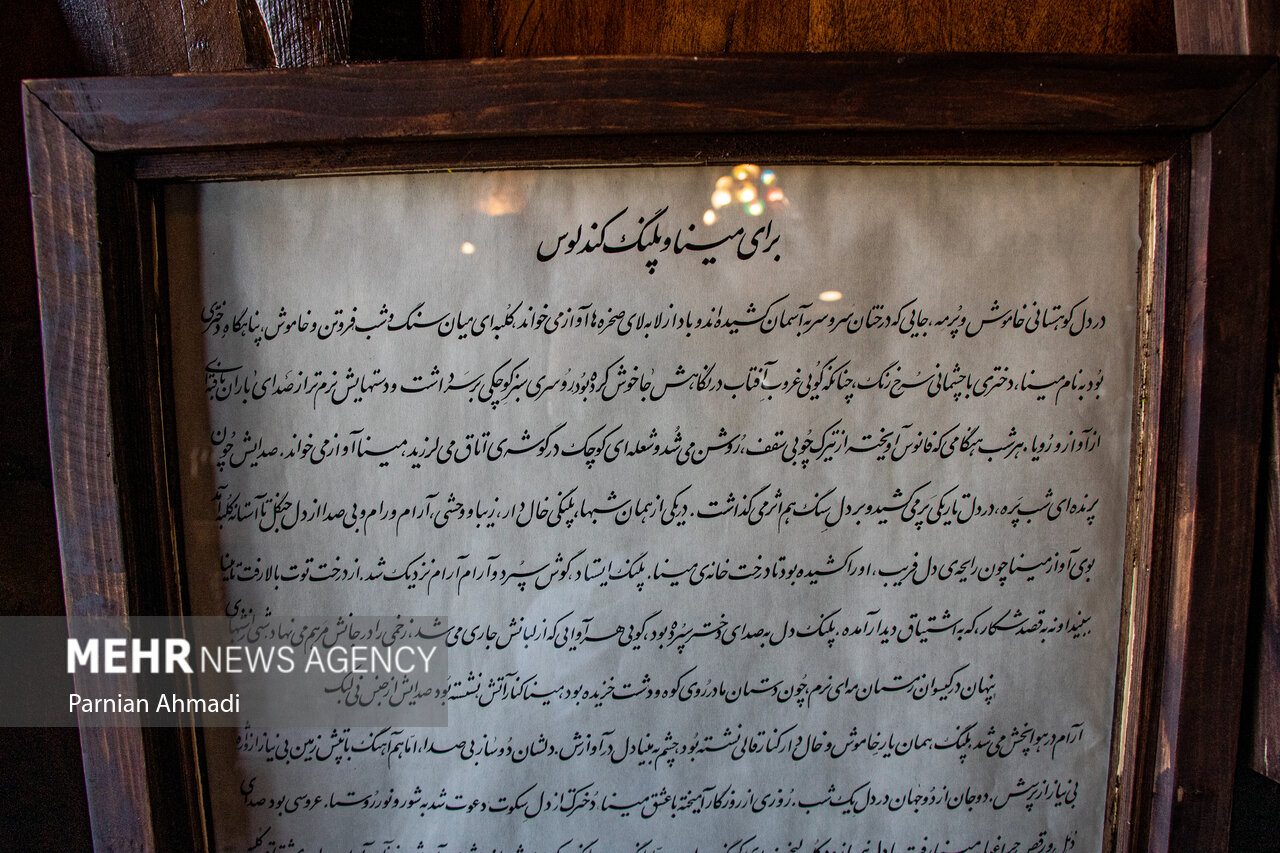 برای مینا و پلنگ کندلوس
در دل کوهستانی خاموش و پُر مه، جایی که درختان سَرو سر به آسمان کشیده‌اند و باد از لابه‌لای صخره‌ها آواز می‌خواند، کلبه‌ای میان سنگ و شب فروتن و خاموش، پناهگاه دختری
بود به نام مینا، دختری با چشمانی سرخ رنگ، چنانکه گویی غروب آفتاب در نگاهش جا خوش کرده بود. روسری سبز کوچکی بر سر داشت و دستهایش نرم تر از صدای باران بافته
از آواز و رویا. هر شب هنگامی که فانوس آویخته از تیرک چوبی سقف، روشن می‌شد و شعله‌ای کوچک در گوشه‌ی اتاق می‌لرزید، مینا آواز می‌خواند. صدایش چون
پرنده‌ای شب پَره، در دل تاریکی پَر می‌کشید و بر دل سنگ هم اثر می‌گذاشت. در یکی از همان شبها، پلنگی خال دار، زیبا و وحشی، آرام و رام و بی صدا از دل جنگل تا آستانه کلبه آمد
بوی آواز مینا چون رایحه‌ی دل فریب، او را کشیده بود تا درخت خانه‌ی مینا. پلنگ ایستاد، گوش سپرد و آرام آرام نزدیک شد. از درخت توت بالا رفت تا مینا
ببیند او نه به قصد شکار، که به اشتیاق دیدار آمده. پلنگ دل به صدای دختر سپرده بود، گویی هر آوایی که از لبانش جاری می‌شد، زخمی را در جانش مرهم می‌نهاد شبی از شبهای
پنهان در گیسوان زمستان مه‌ای نرم، چون دستان مادر روی کوه و دشت خزیده بود، مینا کنار آتش نشسته بود صدایش از جنس نی لبک
آرام در هوا پخش می‌شد پلنگ، همان یار خاموش و خال دار کنار قالی نشسته بود چشم به مینا دل در آوازش، دلشان دو ساز بی صدا، اما هم آهنگ با تپش زمین بی نیاز از واژه
بی نیاز از پرسش. دو جان از دو جهان در دل یک شب. روزی از روزگار آمیخته با عشق مینا دخترک از دل سکوت دعوت شد به شور و نور روستا. عروسی بود صدای
دُهل و رقص چراغها مینا رفت